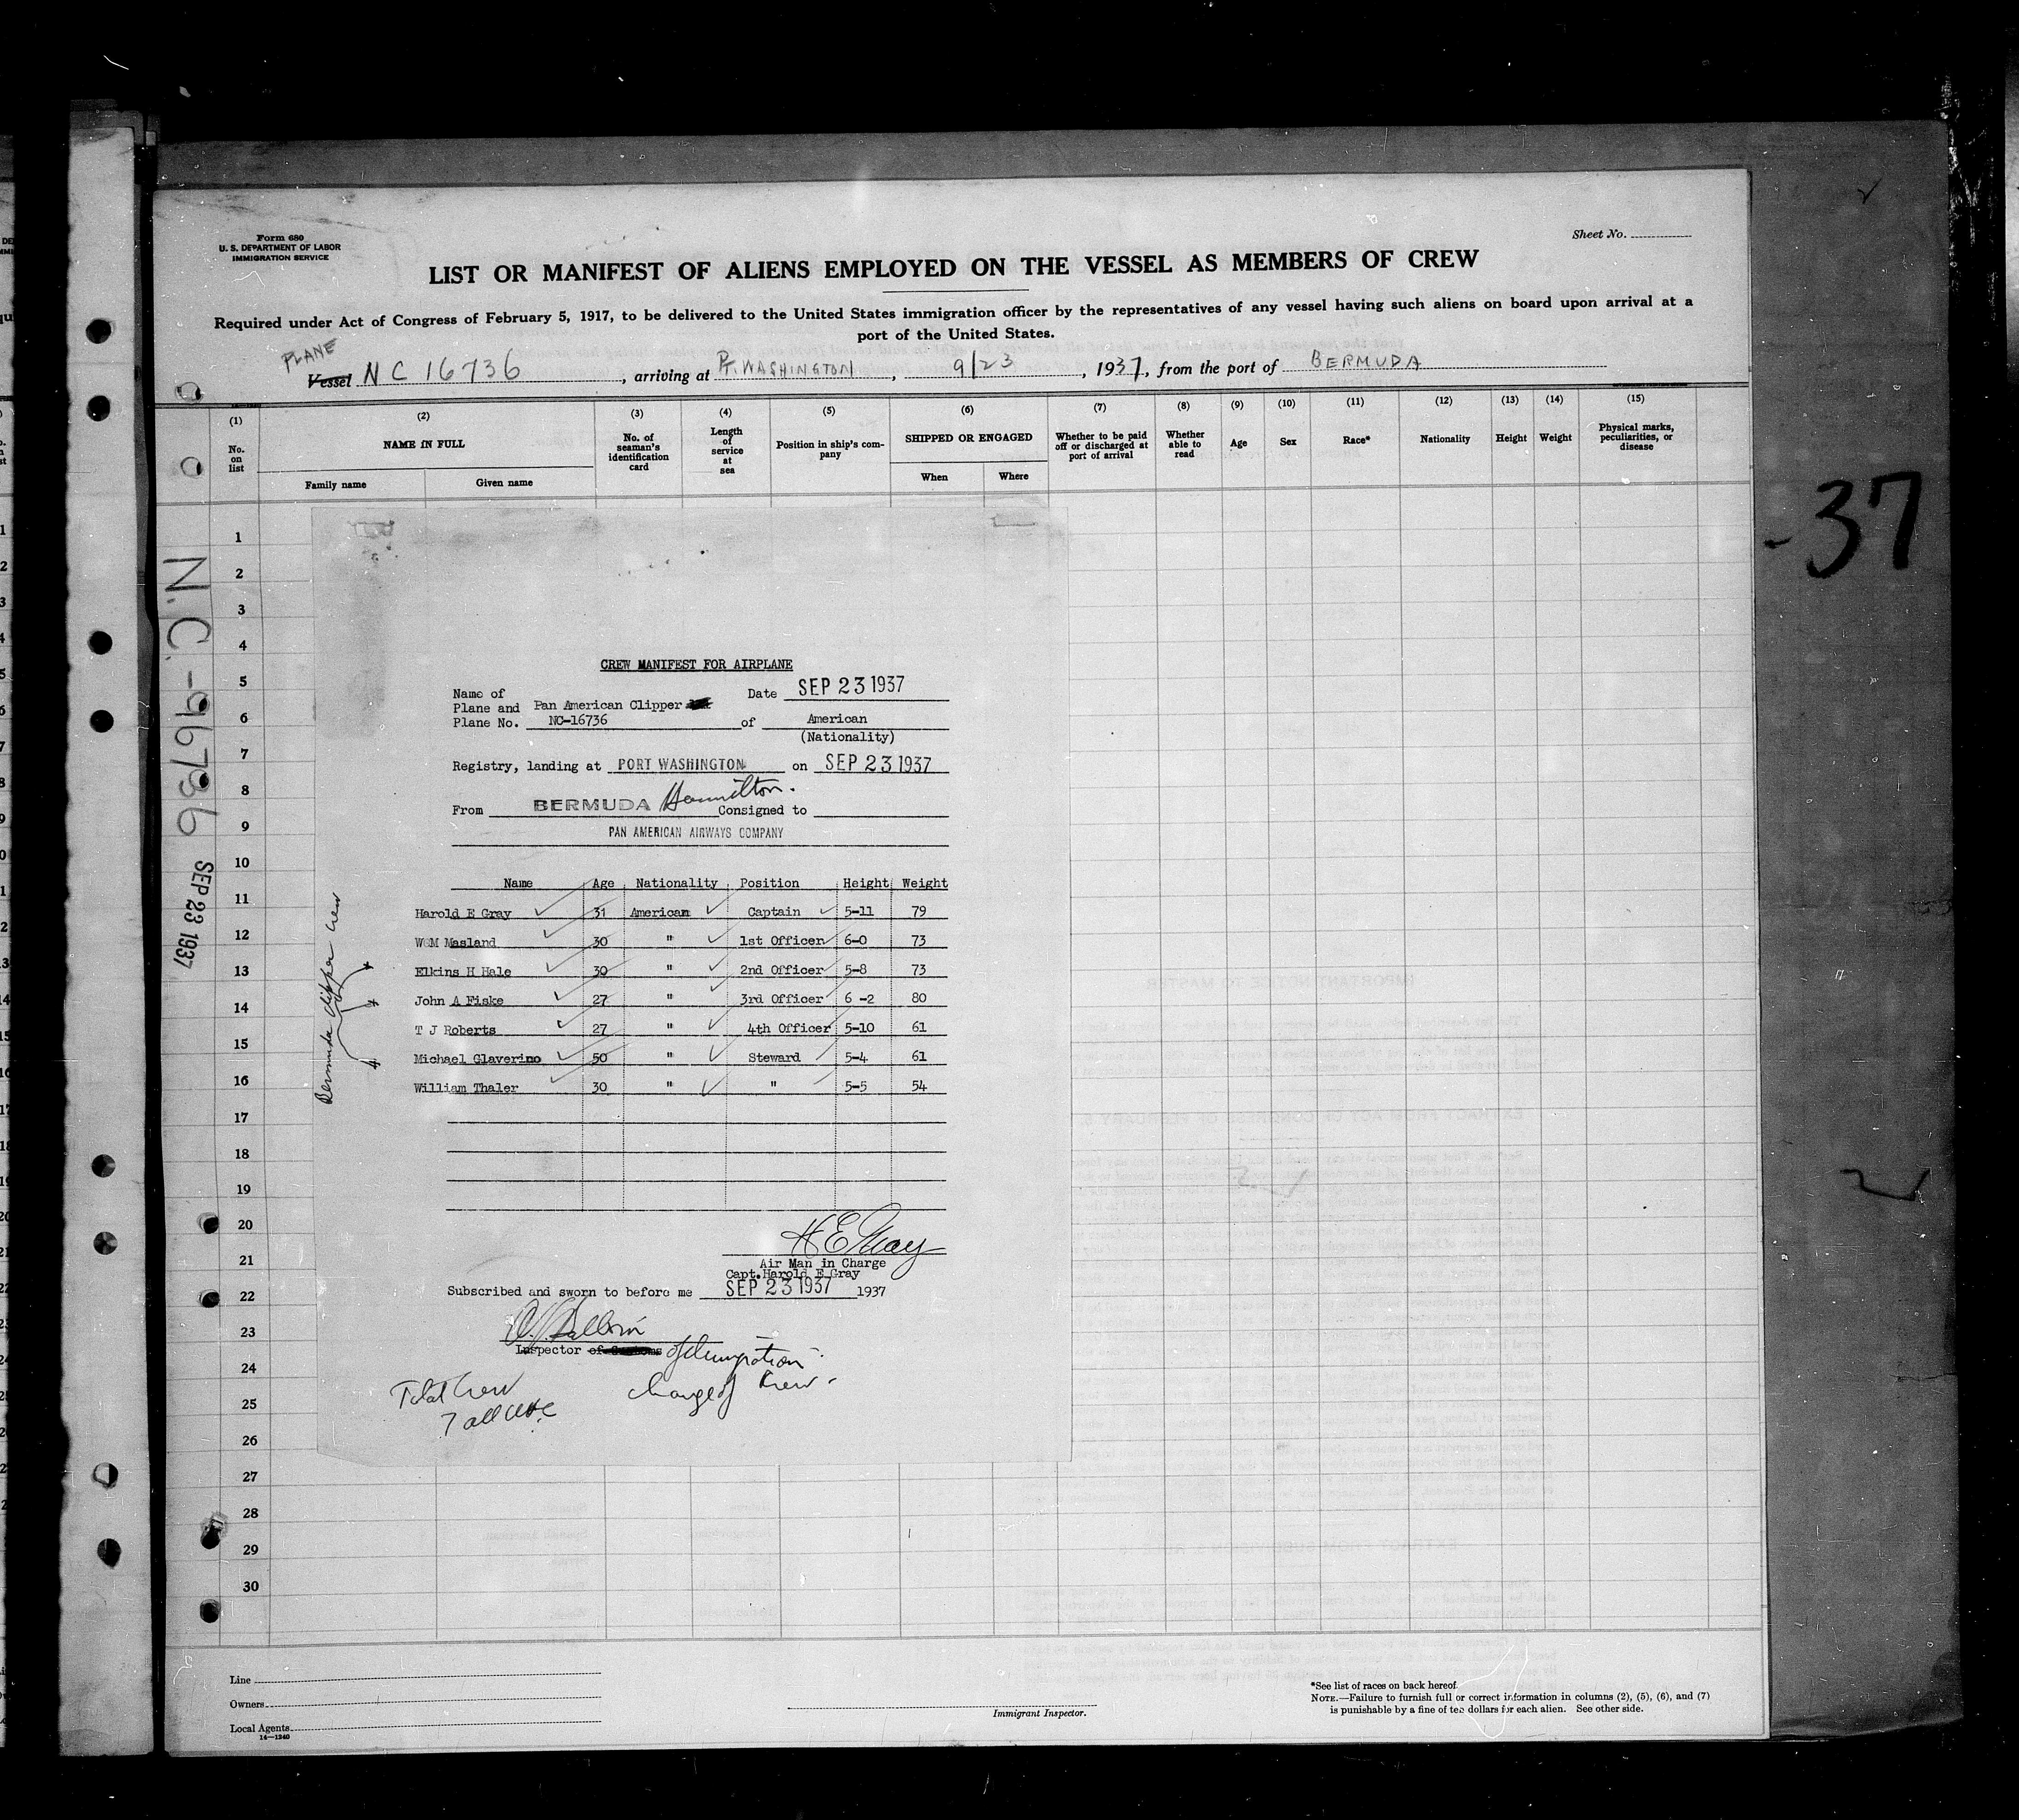 Form 680
U. S. DEPARTMENT OF LABOR
IMMIGRATION SERVICE
Sheet No.
LIST OR MANIFEST OF ALIENS EMPLOYED ON THE VESSEL AS MEMBERS OF CREW
Required under Act of Congress of February 5, 1917, to be delivered to the United States immigration officer by the representatives of any vessel having such aliens on board upon arrival at a
port of the United States.
PLANE
Vessel NC 16736, arriving at PT. WASHINGTON, 9/23, 1937, from the port of BERMUDA
(1) (2) (3) (4) (5) (6) (7) (8) (9) (10) (11) (12) (13) (14) (15)
No. on list
NAME IN FULL
Family name
Given name
No. of seaman's identification card
Length of service at sea
Position in ship's company
SHIPPED OR ENGAGED
When
Where
Whether to be paid off or discharged at port of arrival
Whether able to read
Age
Sex
Race*
Nationality
Height
Weight
Physical marks, peculiarities, or disease
1
2
3
4
5
6
7
8
9
10
11
12
13
14
15
16
17
18
19
20
21
22
23
24
25
26
27
28
29
30
N.C.-16736 SEP 23 1937
-37
CREW MANIFEST FOR AIRPLANE
Name of
Plane and Pan American Clipper Date SEP 23 1937
Plane No. NC-16736 of American
(Nationality)
Registry, landing at PORT WASHINGTON on SEP 23 1937
From BERMUDA Hamilton. Consigned to
PAN AMERICAN AIRWAYS COMPANY
Name Age Nationality Position Height Weight
Harold E Gray 31 American Captain 5-11 79
W&M Masland 30 " 1st Officer 6-0 73
Elkins H Hale 30 " 2nd Officer 5-8 73
John A Fiske 27 " 3rd Officer 6 -2 80
T J Roberts 27 " 4th Officer 5-10 61
Michael Glaverino 50 " Steward 5-4 61
William Thaler 30 " " 5-5 54
Bermuda Clipper Crew
H E Gray
Air Man in Charge
Capt. Harold E Gray
Subscribed and sworn to before me SEP 23 1937 1937
Inspector of Customs of Immigration
Total Crew
7 all USC
Change of Crew.
Line
Owners
Local Agents
14—1240
Immigrant Inspector.
*See list of races on back hereof.
NOTE.—Failure to furnish full or correct information in columns (2), (5), (6), and (7)
is punishable by a fine of ten dollars for each alien. See other side.